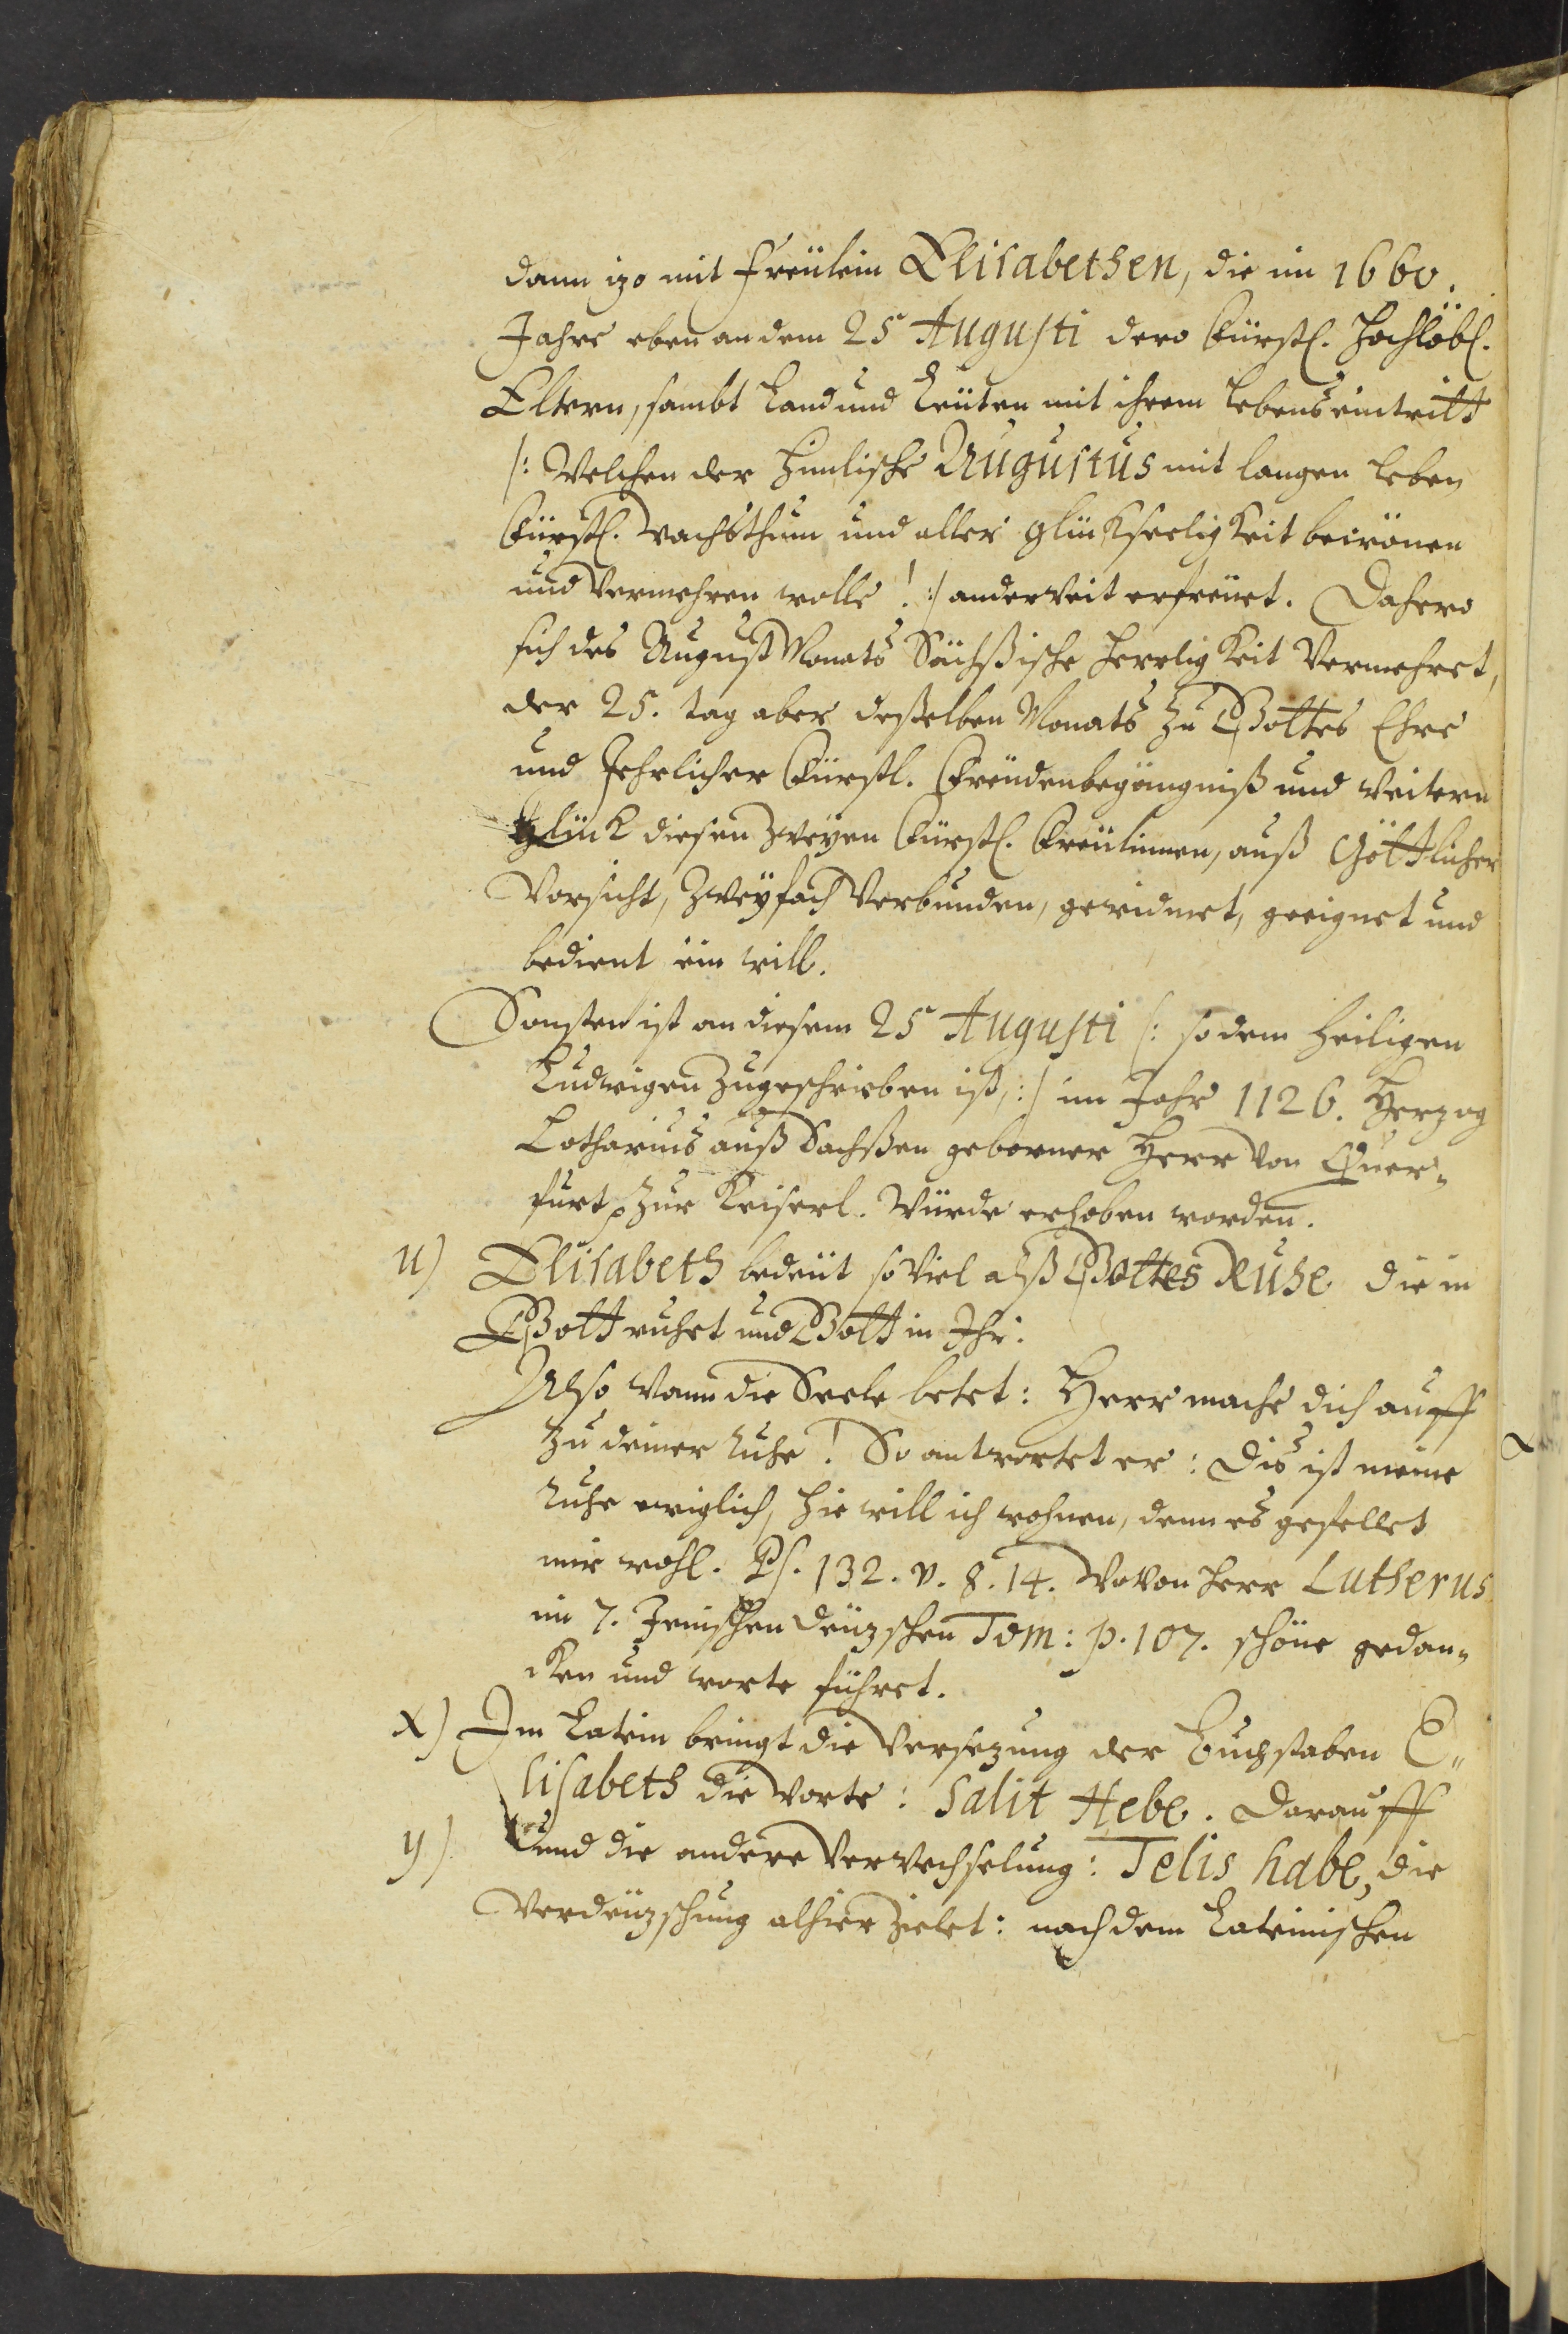 dann izo mit Freülein Elisabethen, die im 1660.
Jahre eben an dem 25 Augusti dero Fürstl. Hochlöbl.
Eltern, sambt Land und Leüten mit ihrem Lebens eintritt
/: Welchen der Himlische Augustus mit langen Leben
Fürstl. Wachsthum und aller glükseeligkeit
und Vermehren wolle! :/ anderweit erfreüet. Dahero
sich des August Monats Sächßische Herrligkeit Vermehret,
der 25. tag aber deßelben Monats Zu Gottes Ehre
und Jehrlicher Fürstl. Freüdenbegängniß und weitern
Glück diesen Zweyen Fürstl. Freülinnen, auß Göttlicher
Vorsicht, Zweyfach Verbunden, gewidmet, geeignet und
bedient sein will.
Sonsten ist an diesem 25 Augusti /: so dem Heiligen
Ludwigen Zugeschrieben ist, :/ im Jahr 1126. Herzog
Lotharius auß Sachßen geborner Herr von Quer-
furt, Zur Keiserl. Würde erhoben worden.
u) Elisabeth bedeüt so Viel alß Gottes Ruhe die in
Gott ruhet und Gott in Ihr.
Also wann die Seele betet: Herr mache dich auff
Zu deiner Ruhe! So antwortet er: Dis ist meine
Ruhe ewiglich, hie will ich wohnen, denn es gefellet
mir wohl. Ps. 132. v. 8. 14. Wovon Herr Lutherus
im 7. Jenischen deüzschen Tom: p. 107. schöne gedan-
cken und worte führet.
x) Im Latein bringt die Versezung der Buchstaben E-
lisabeth die Worte: Salit Hebe. Darauff
y) und die andere Verwechselung: Telis habe, die
Verdeüzschung alhier Zielet: nach dem Lateinischen